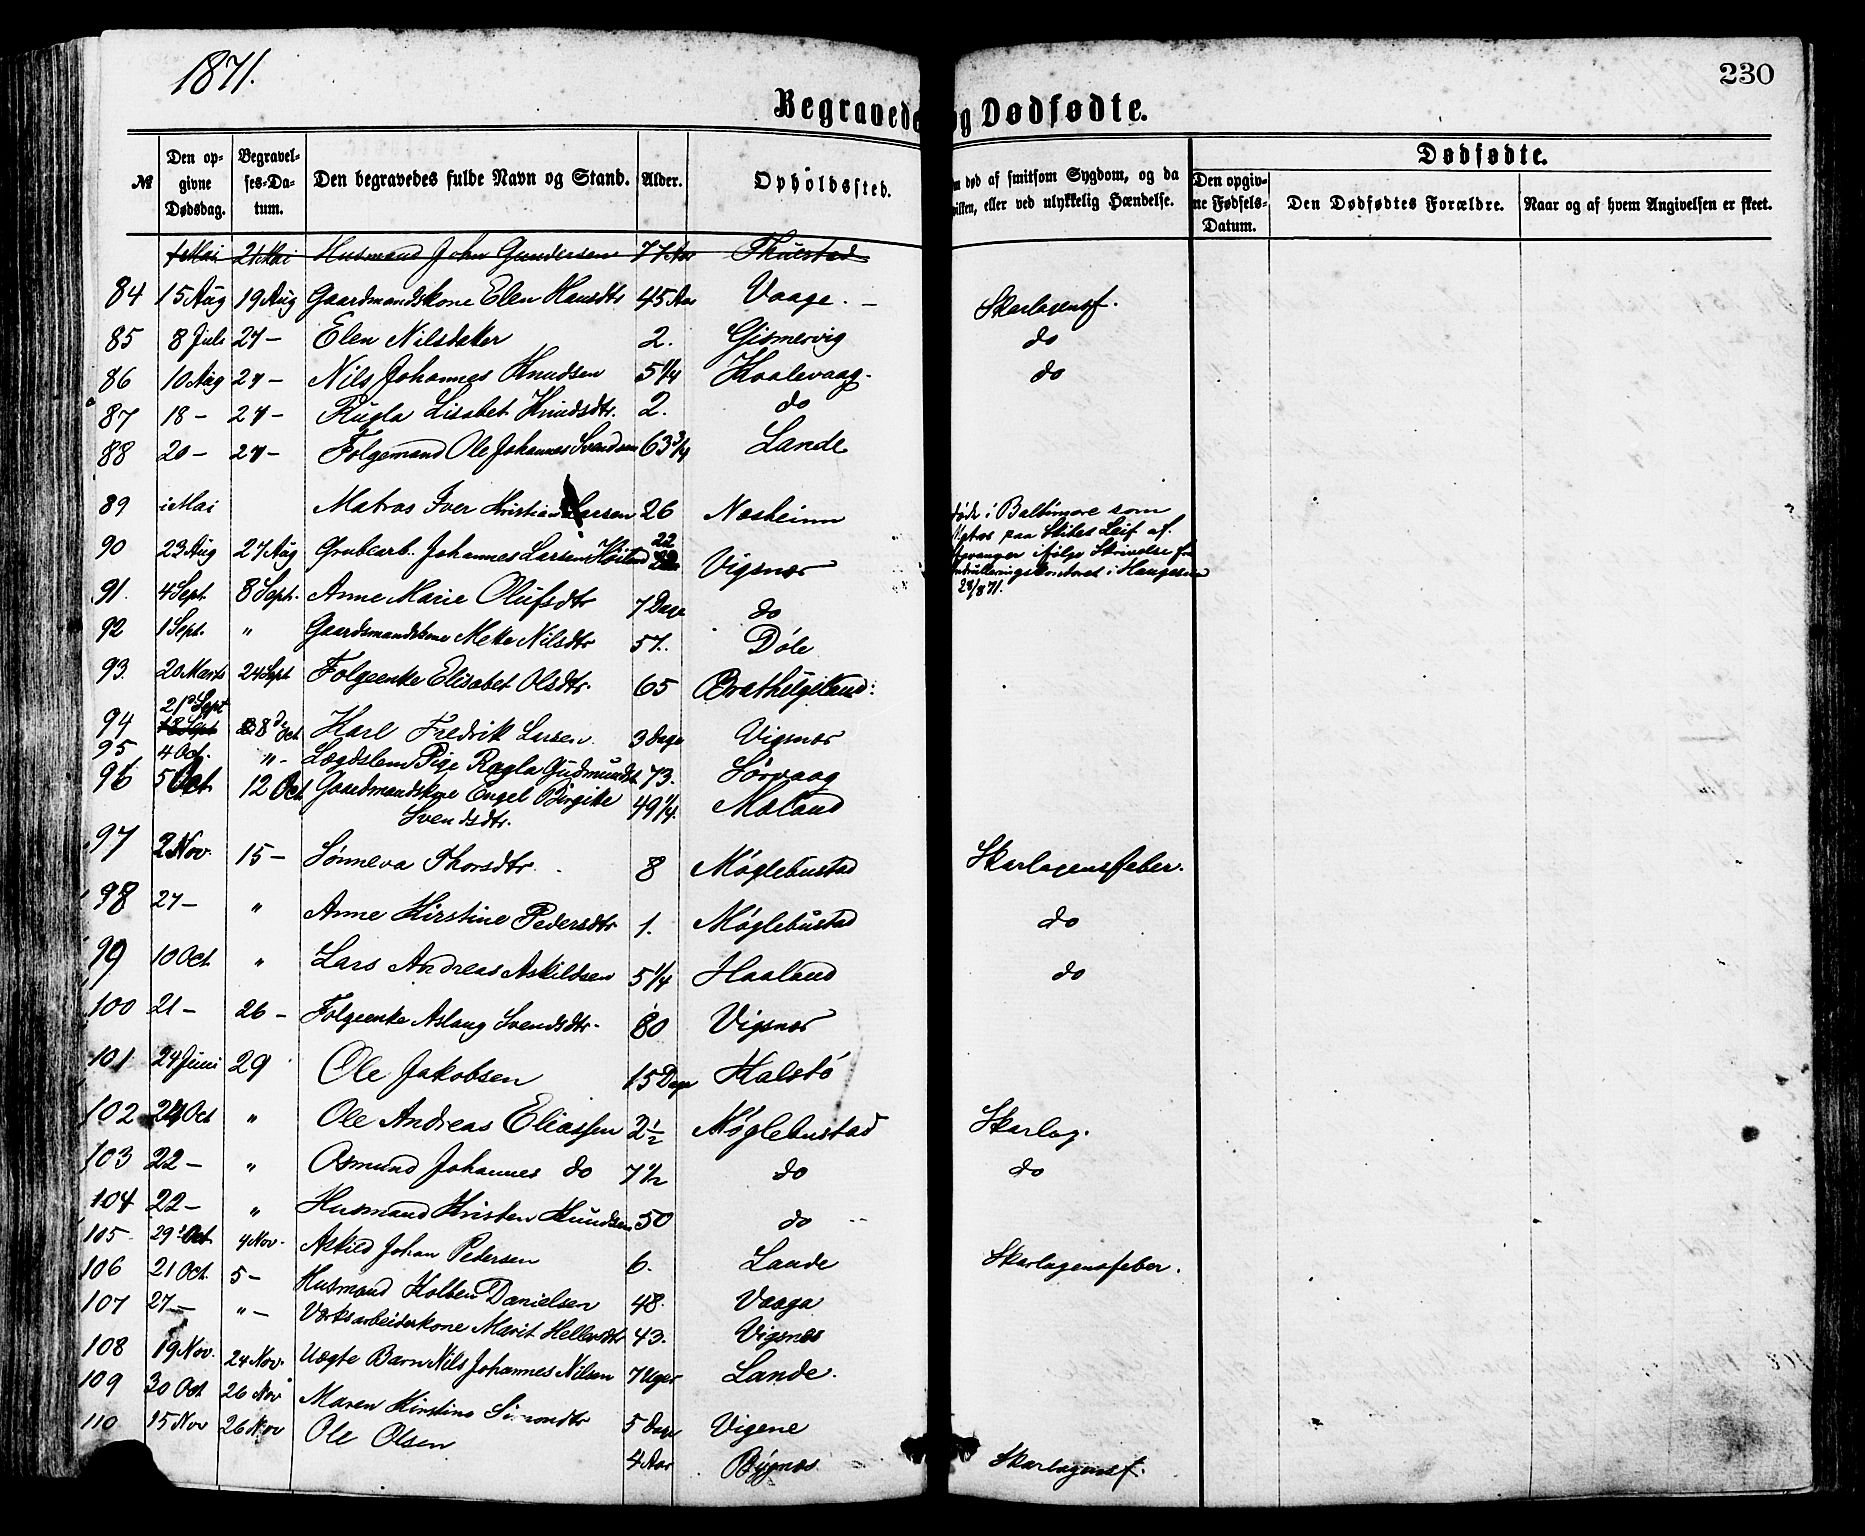 1871.
230
Begravede og Dødfødte.
№
Den opgivne Dødsdag.
Begravelses-Datum.
Den begravedes fulde Navn og Stand.
Alder.
Opholdssted.
død af smitsom Sygdom, og da
eller ved ulykkelig Hændelse.
Dødfødte.
Den opgivne Fødsels-Datum.
Den Dødfødtes Forældre.
Naar og af hvem Angivelsen er skeet.
Mai 21 Mai Husmand John Gundersen 77 Aar
84 15 Aug 19 Aug Gaardmandskone Elen Hansdtr 45 Aar Vaage. – Skarlagensf.
85 8 Juli 27 – Elen Nilsdatter 2. Gismervig do
86 10 Aug 27 – Nils Johannes Knudsen 5 1/4 Hoalevaag. do
87 18 – 27 – Rugla Lisabet Knudsdtr. 2. do
88 20 – 27 – Folgemand Ole Johannes Svendsen 63 3/4 Lande
89 i Mai Matros Iver Kristian Larsen 26 Nesheim døde i Baltimore som
Matros paa Skibet Leif af
Stavanger ifølge Skrivelse fra
Indrulleringskontoret i Haugesun
28/8 71.
90 23 Aug 27 Aug Grubearb. Johannes Larsen 22 Vigsnæs
91. 4 Sept 8 Sept. Anne Marie Olufsdtr 7 Dage do
92 1 Sept. " Gaardmandskone Mette Nilsdtr 57. Døle
93. 20 Marts 24 Sept Folgeenke Elisabet Olsdtr. 65 Brathelgeland:
94 21de Sept 18 Sept 8de Oct. Karl Fredrik Larsen 3 Dage Vigsnæs
95 4 Oct. " – Lægdslem Pige Ragla Gudmundsdt 73. Sørvaag
96 5 Oct 12 Oct Gaardmandskone Engel Birgitte
Svendsdtr. 49 1/4. Moland
97 2 Nov. 15 – Sønneva Thorsdtr. 8 Møglebustad Skarlagensfeber.
98 27 – " Anne Kirstine Pedersdtr 1. Møglebustad do
99 10 Oct " Lars Andreas Askildsen 5 1/4 Haaland do
100 21 – 26 – Folgeenke Aslaug Svendsdtr. 80 Vigsnæs
101 24 Juni 29 Ole Jakobsen 15 Dage Halstø
102 24 Oct " Ole Andreas Eliassen 2 1/2 Møglebustad Skarlag.
103 22 – " Osmund Johannes do 7 1/2 do do
104 22 – " Husmand Kristen Knudsen 50 do
105 29 Oct. 4 Nov. Askild Johan Pedersen 6. Lande Skarlagensfeber.
106 21 Oct. 5 – Husmand Kolben Danielsen 48. Vaaga
107 27 – " – Værksarbeiderkone Marit Hellersdtr 43. Vigsnes
108 19 Nov. 24 Nov. Uægte Barn Nils Johannes Nilsen 7 Uger Lande.
109 30 Oct 26 Nov Maren Kirstine Simondtr 5 Dage Vigsne
110 15 Nov 26 Nov Ole Olsen 4 Aar Bygnes Skarlagensf.